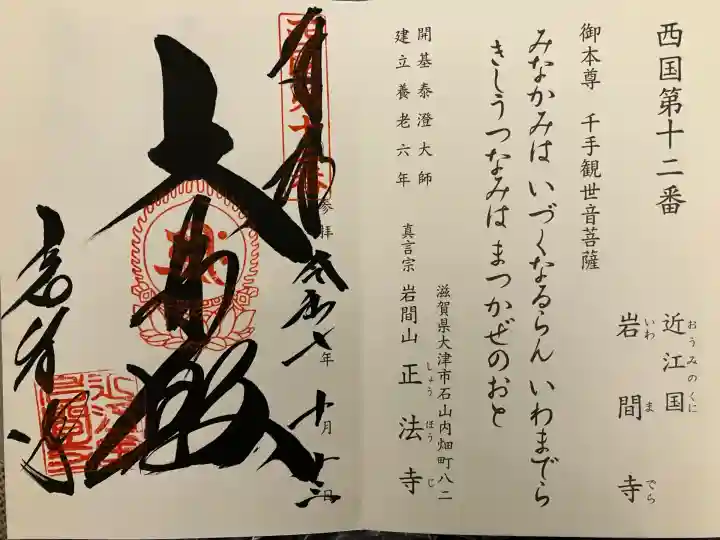 西国第十二番
近江国
おうみのくに
岩間寺
いわまでら
御本尊 千手観世音菩薩
みなかみは いづくなるらん いわまでら
きしうつなみは まつかぜのおと
開基泰澄大師
建立養老六年
滋賀県大津市石山内畑町八二
真言宗 岩間山 正法寺
しょうほうじ
奉拝
参拝 七年 十月十三日
大悲殿